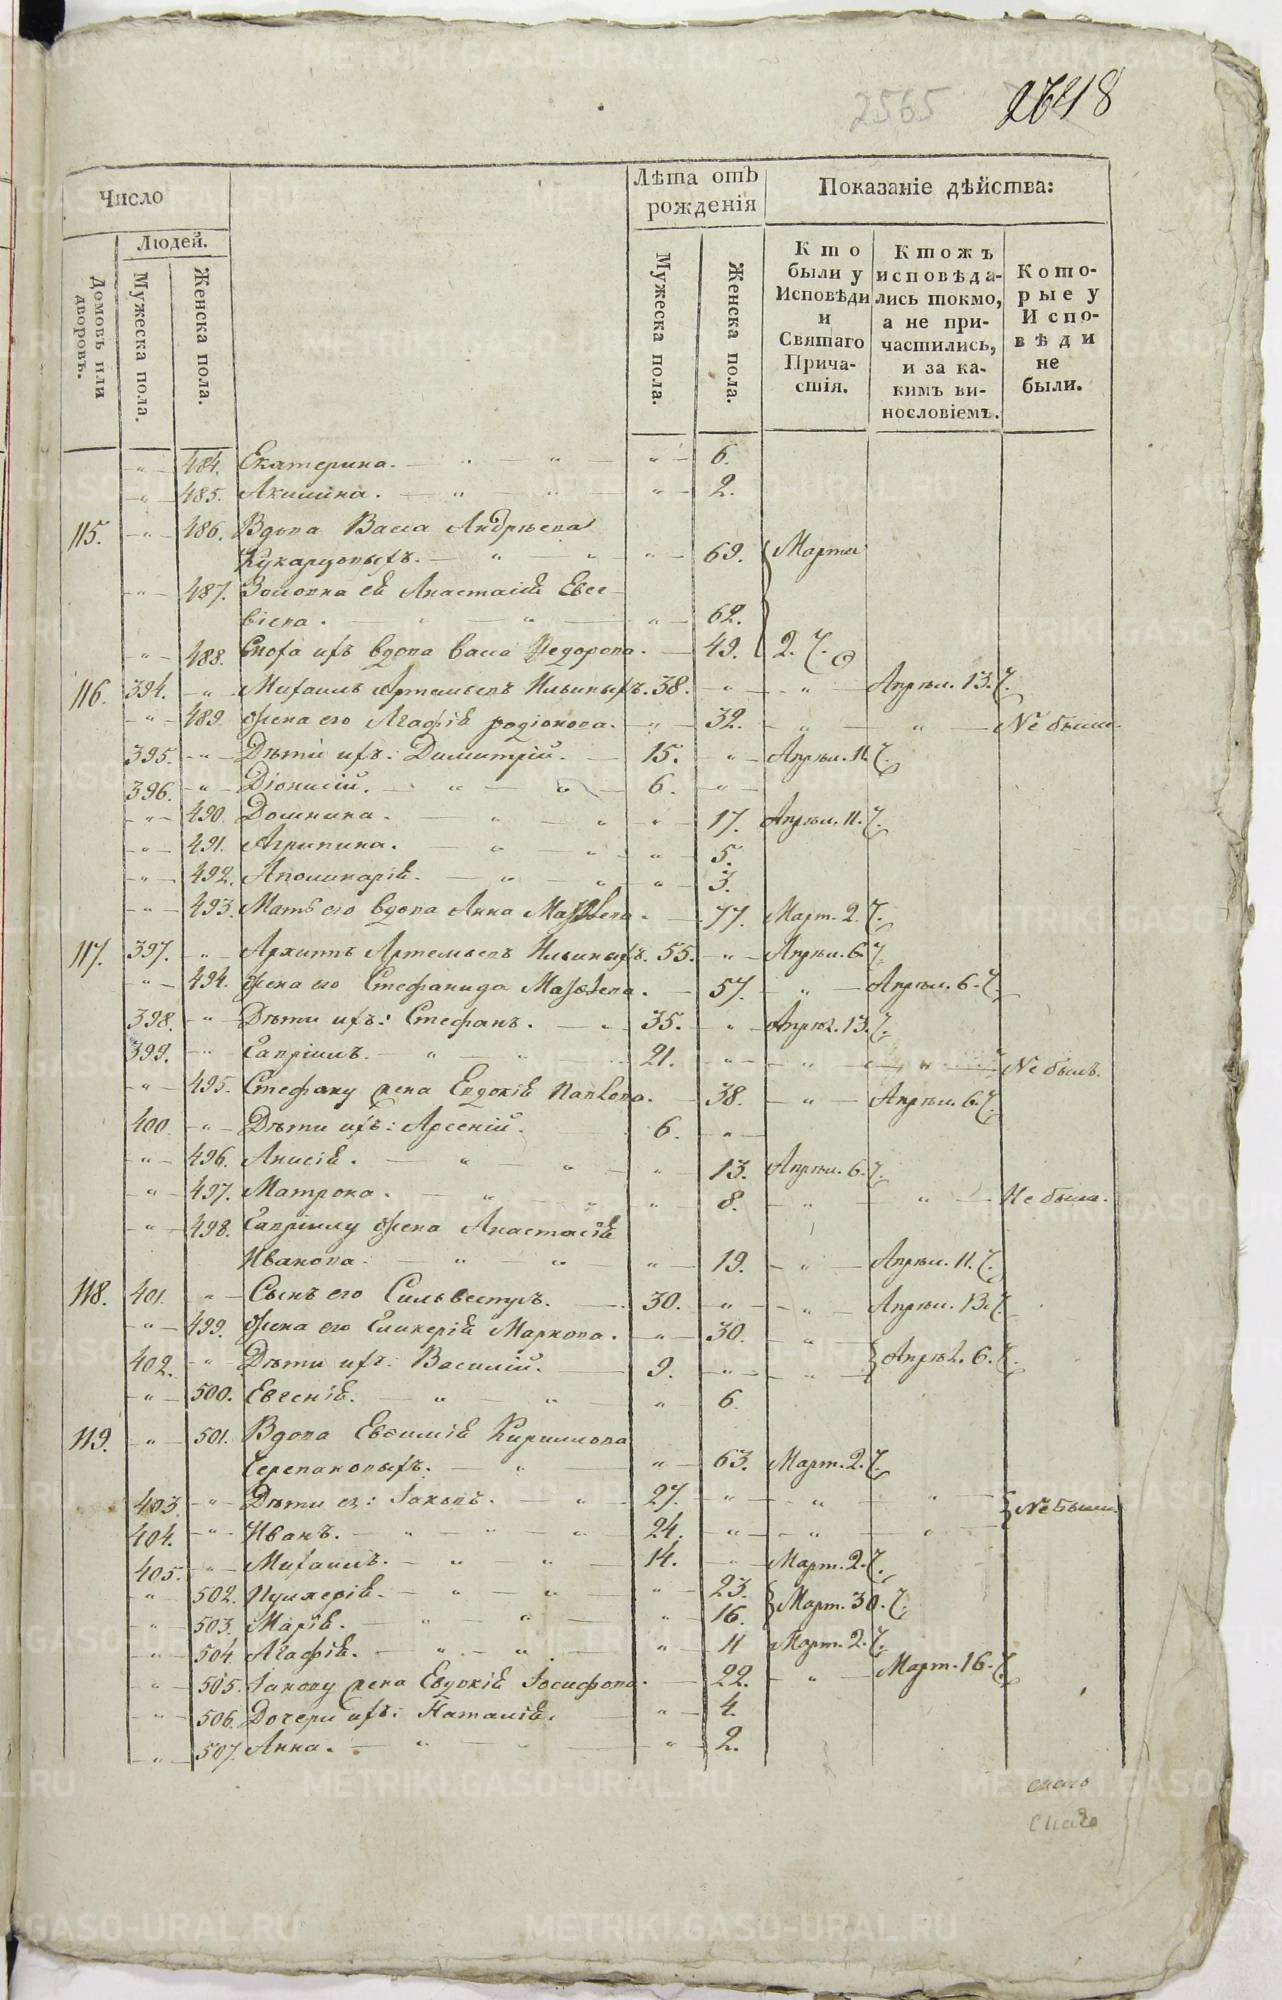 2565
Число
Людей.
Домовъ или дворовъ.
Мужеска пола.
Женска пола.
Лѣта отъ рожденія
Мужеска пола.
Женска пола.
Показаніе дѣйства:
Кто были у Исповѣди и Святаго Причастія.
Ктожъ исповѣдались токмо, а не причастились, и за какимъ винословіемъ.
Которые у Исповѣди не были.
484. Екатерина. 6.
485. Акилина. 2.
115. 486. Вдова Васса Андрѣева
69. Марта
487. Золовка ей Анастасія Евсе-
віева. 62.
488. Сноха ихъ вдова Васса Ѳедорова. 49. 2. Ч.
116. 394. Михаилъ Артемьевъ Ильиныхъ. 38. Апрѣл. 13. Ч.
489. Жена его Агафія Родіонова. 32. Не были.
395. Дѣти ихъ: Димитрій. 15. Апрѣл. 11. Ч.
396. Діонисій. 6.
490. Домнина. 17. Апрѣл. 11. Ч.
491. Агрипина. 5.
492. Аполинарія. 3.
493. Мать его вдова Анна 77. Март. 2. Ч.
117. 397. Архипъ Артемьевъ Ильиныхъ. 55. Апрѣл. 6. Ч.
494. Жена его Стефанида 57. Апрѣл. 6. Ч.
398. Дѣти ихъ: Стефанъ. 35. Апрѣл. 13. Ч.
399. Гавріилъ. 21. Не былъ.
495. Стефану жена Евдокія Павлова. 38. Апрѣл. 6. Ч.
400. Дѣти ихъ: Арсеній. 6.
496. Анисія. 13. Апрѣл. 6. Ч.
497. Матрона. 8. Не была.
498. Гавріилу жена Анастасія
Иванова. 19. Апрѣл. 11. Ч.
118. 401. Сынъ его Сильвестръ. 30. Апрѣл. 13. Ч.
499. Жена его Гликерія Маркова. 30.
402. Дѣти ихъ: Василій. 9. Апрѣл. 6. Ч.
500. Евгенія. 6
119. 501. Вдова Евѳимія Кирилова
Черепановыхъ. 63. Март. 2. Ч.
403. Дѣти ея: Іаковъ. 27. Не были.
404. Иванъ. 24.
405. Михаилъ. 14. Март. 2. Ч.
502. Пулхерія. 23. Март. 30. Ч.
503. Марія. 16.
504 Агафія. 11 Март. 2. Ч.
505. Іакову жена Евдокія Іосифова. 22. Март. 16. Ч.
506. Дочери ихъ: Наталія. 4.
507. Анна. 2.
METRIKI.GASO-URAL.RU